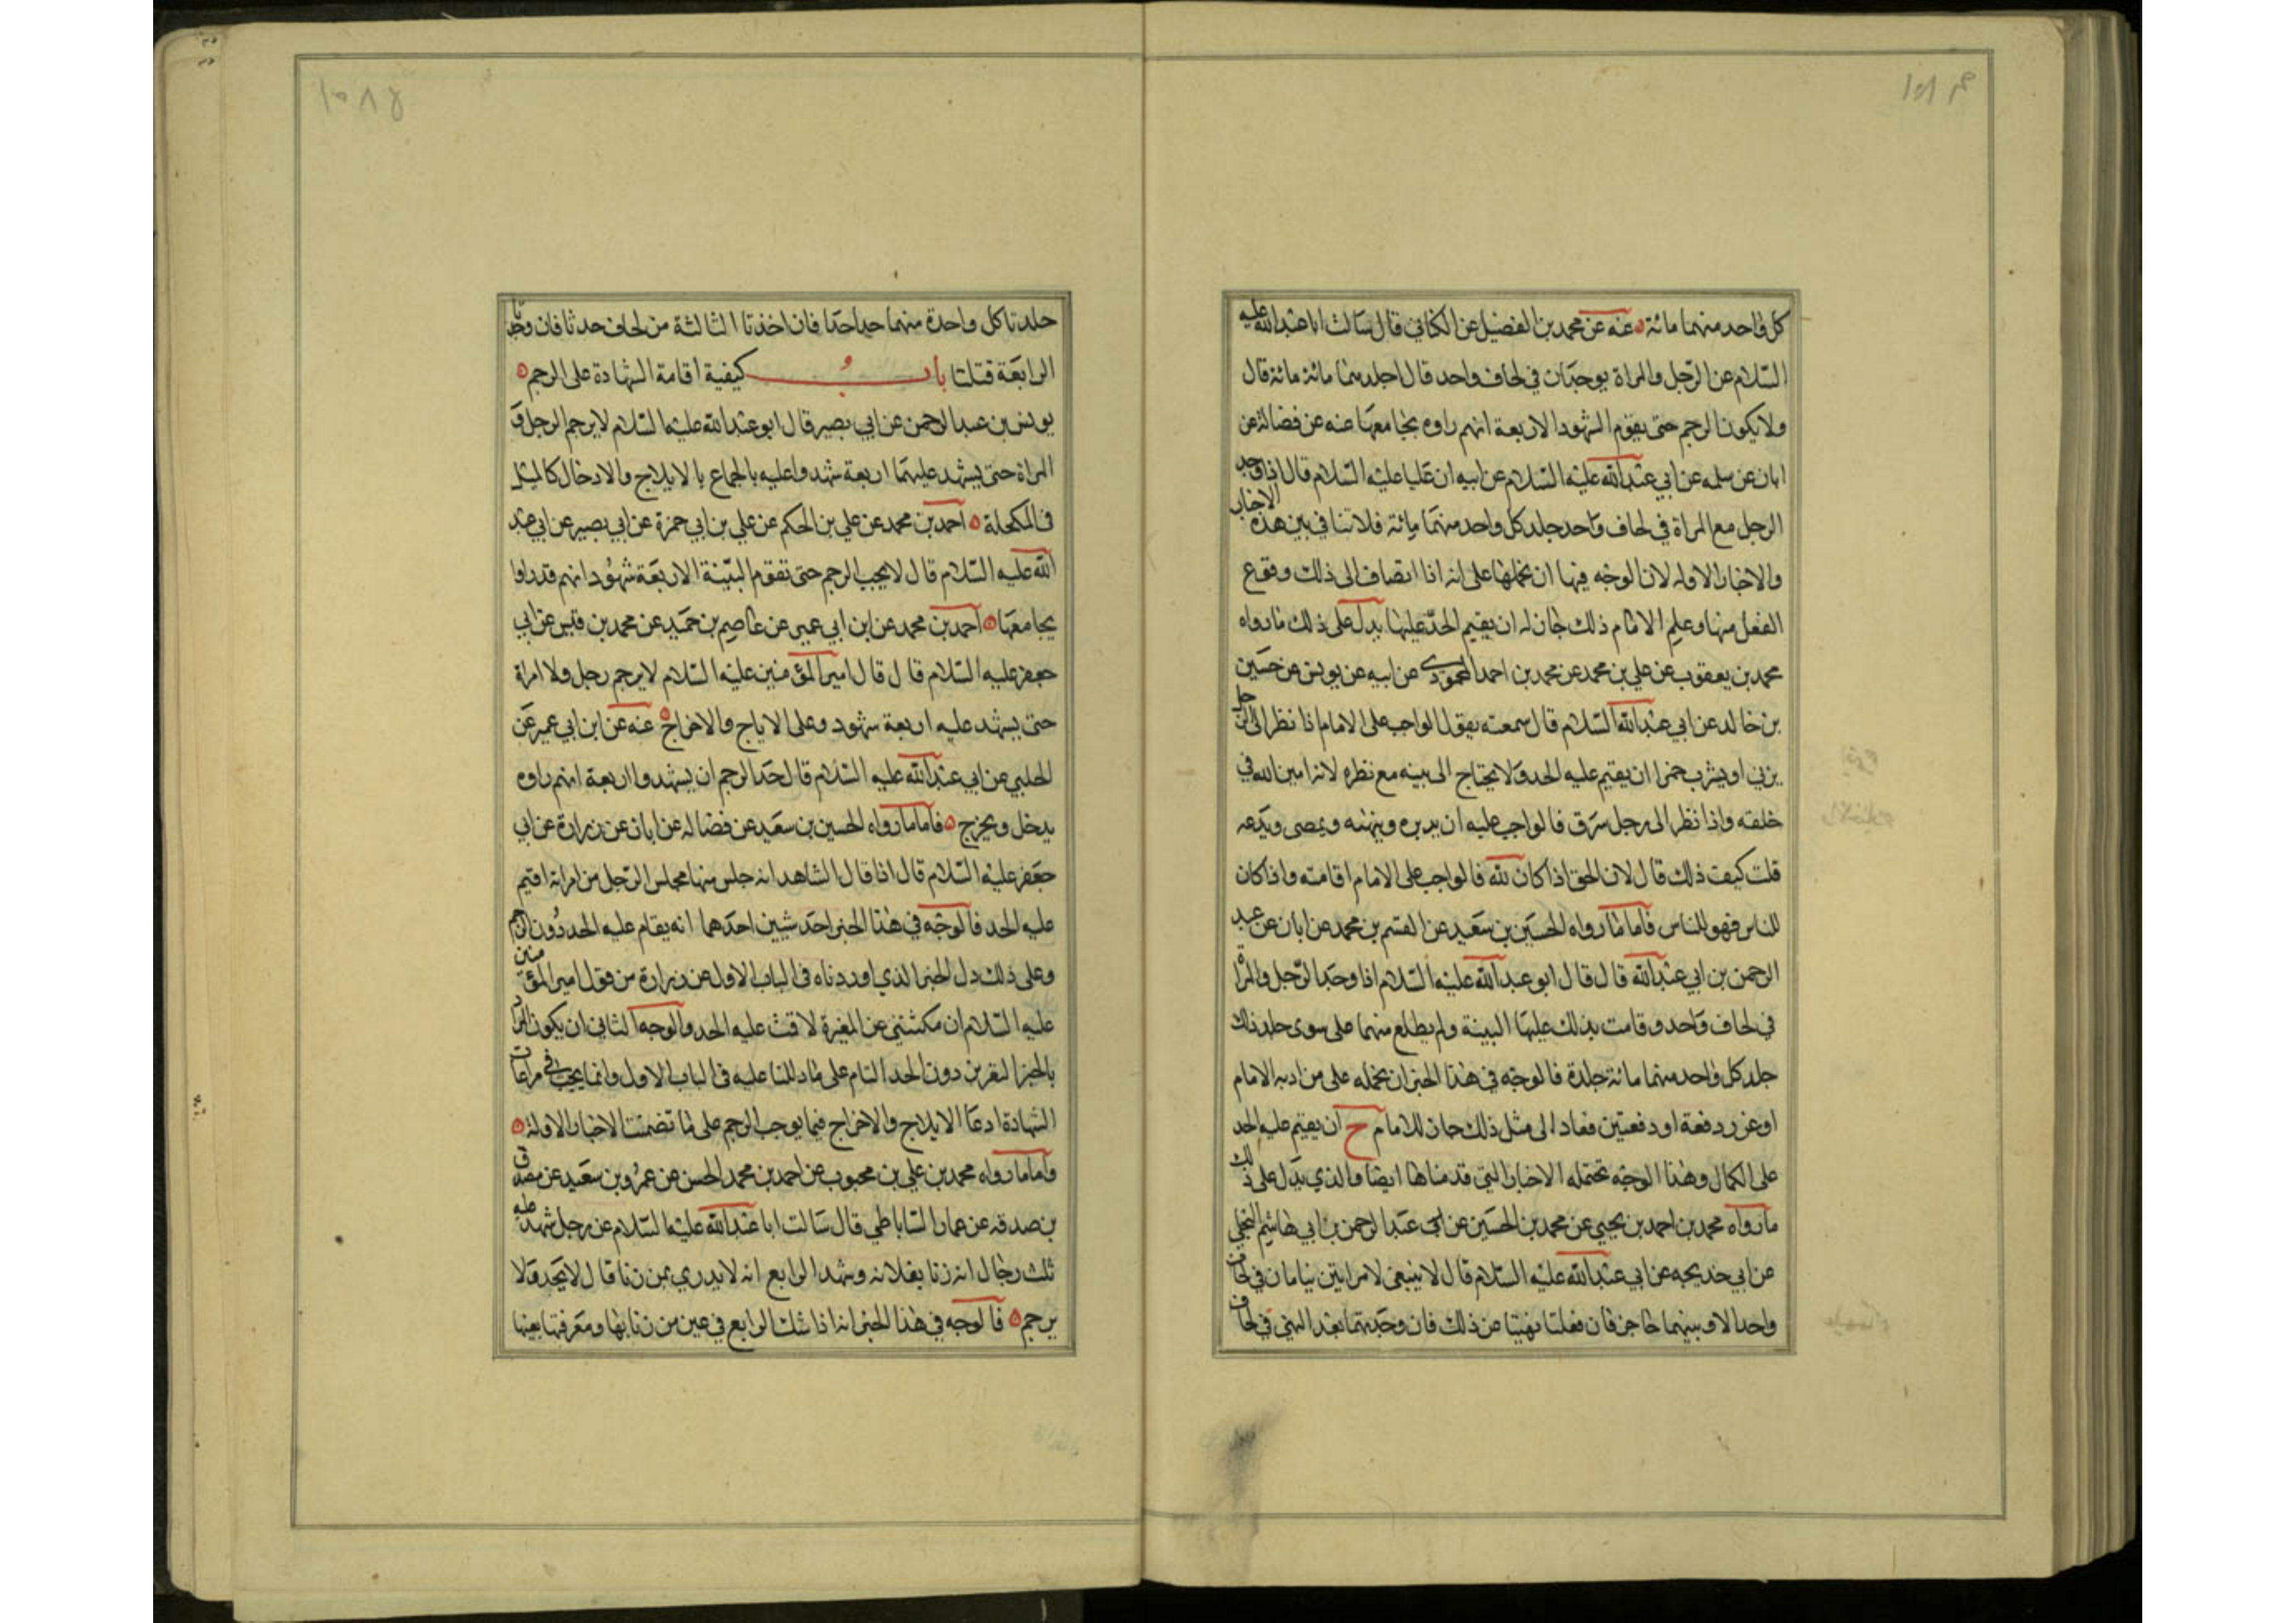 كل واحد منهما مائة عنه عن محمد بن الفضيل عن الكناني قال سالت ابا عبد الله عليه
السلام عن الرجل والمراة يوجدان في لحاف واحد قال اجلدهما مائة مائة قال
ولا يكون الرجم حتى يقوم الشهود الاربعة انهم راوه يجامعها عنه عن فضالة عن
ابان عن سلمه عن ابي عبد الله عليه السلام عن ابيه ان عليا عليه السلام قال اذا وجد
الرجل مع المراة في لحاف واحد جلد كل واحد منهما مائة فلا تنافي بين هذه الاخبار
والاخبار الاوله لان الوجه فيها ان نحملها على انه اذا انضاف الى ذلك وقوع
الفعل منها وعلم الامام ذلك جاز له ان يقيم الحد عليها يدل على ذلك ما رواه
محمد بن يعقوب عن علي بن محمد عن محمد بن احمد المحمودي عن ابيه عن يونس عن حسين
بن خالد عن ابي عبد الله السلام قال سمعته يقول الواجب على الامام اذا نظر الى الرجل
يزني او يشرب خمرا ان يقيم عليه الحد ولا يحتاج الى بينه مع نظره لانه امين الله في
خلقه واذا نظر الى رجل سرق فالواجب عليه ان يدبره وينهنه ويمضى ويدعه
قلت كيف ذلك قال لان الحق اذا كان لله فالواجب على الامام اقامته واذا كان
للناس فهو للناس فاما ما رواه الحسين بن سعيد عن القسم بن محمد عن ابان عن عبد
الرحمن بن ابي عبد الله قال قال ابو عبد الله عليه السلام اذا وجد الرجل والمراة
في لحاف واحد وقامت بذلك عليهما البينة ولم يطلع منهما على سوى ذلك
جلد كل واحد منهما مائة جلدة فالوجه في هذا الخبر ان نحمله على من ادبه الامام
او عزر دفعة او دفعتين فعاد الى مثل ذلك جاز للامام ح ان يقيم عليه الحد
على الكمال وهذا الوجه تحتمله الاخبار التي قدمناها ايضا والذي يدل على ذلك
ما رواه محمد بن احمد بن يحيى عن محمد بن الحسين عن عبد الرحمن بن ابي هاشم البجلي
عن ابي خديجه عن ابي عبد الله عليه السلام قال لا ينبغي لامراتين تنامان في لحاف
واحد الا وبينهما حاجز فان فعلتا نهيتا عن ذلك فان وجدتهما بعد النهي في لحاف
جلدتا كل واحدة منهما حدا حدا فان اخذتا الثالثة من لحاف حدثا فان وجدتا
الرابعة قتلتا باب كيفية اقامة الشهادة على الرجم
يونس بن عبد الرحمن عن ابي بصير قال ابو عبد الله عليه السلام لا يرجم الرجل و
المراة حتى يشهد عليهما اربعة شهداء عليه بالجماع بالايلاج والادخال كالميل
في المكحلة احمد بن محمد عن علي بن الحكم عن علي بن ابي حمزة عن ابي بصير عن ابي عبد
الله عليه السلام قال لا يجب الرجم حتى تقوم البينة الاربعة شهود انهم قد راوا
يجامعها احمد بن محمد عن ابن ابي عمير عن عاصم بن حميد عن محمد بن قيس عن ابي
جعفر عليه السلام قال قال امير المؤمنين عليه السلام لا يرجم رجل ولا امراة
حتى يشهد عليه اربعة شهود وعلى الاياج والاخراج عنه عن ابن ابي عمير عن
الحلبي عن ابي عبد الله عليه السلام قال حد الرجم ان يشهدوا اربعة انهم راوه
يدخل ويخرج فاما ما رواه الحسين بن سعيد عن فضاله عن ابان عن زرارة عن ابي
جعفر عليه السلام قال اذا قال الشاهد انه جلس منها مجلس الرجل من امراته اقيم
عليه الحد فالوجه في هذا الخبر احد شيين احدهما انه يقام عليه الحد دون الرجم
وعلى ذلك دل الخبر الذي اوردناه في الباب الاول عن زرارة من قول امير المؤمنين
عليه السلام ان مكنتني عن المغيرة لاقت عليه الحد والوجه الثاني ان يكون المراد
بالخبر التعزير دون الحد التام على ما دللنا عليه في الباب الاول وانما يجب في مراعات
الشهادة ادعا الايلاج والاخراج فيما يوجب الرجم على ما تضمنت الاخبار الاولة
واما ما رواه محمد بن علي بن محبوب عن احمد بن محمد الحسن عن عمرو بن سعيد عن مصدق
بن صدقه عن عمار الساباطي قال سالت ابا عبد الله عليه السلام عن رجل شهد عليه
ثلث رجال انه زنا بفلانه وشهد الرابع انه لا يدري بمن زنا قال لا يحد ولا
يرجم فالوجه في هذا الخبر انه اذا شك الرابع في عين من زنا بها ومعرفتها بعينها